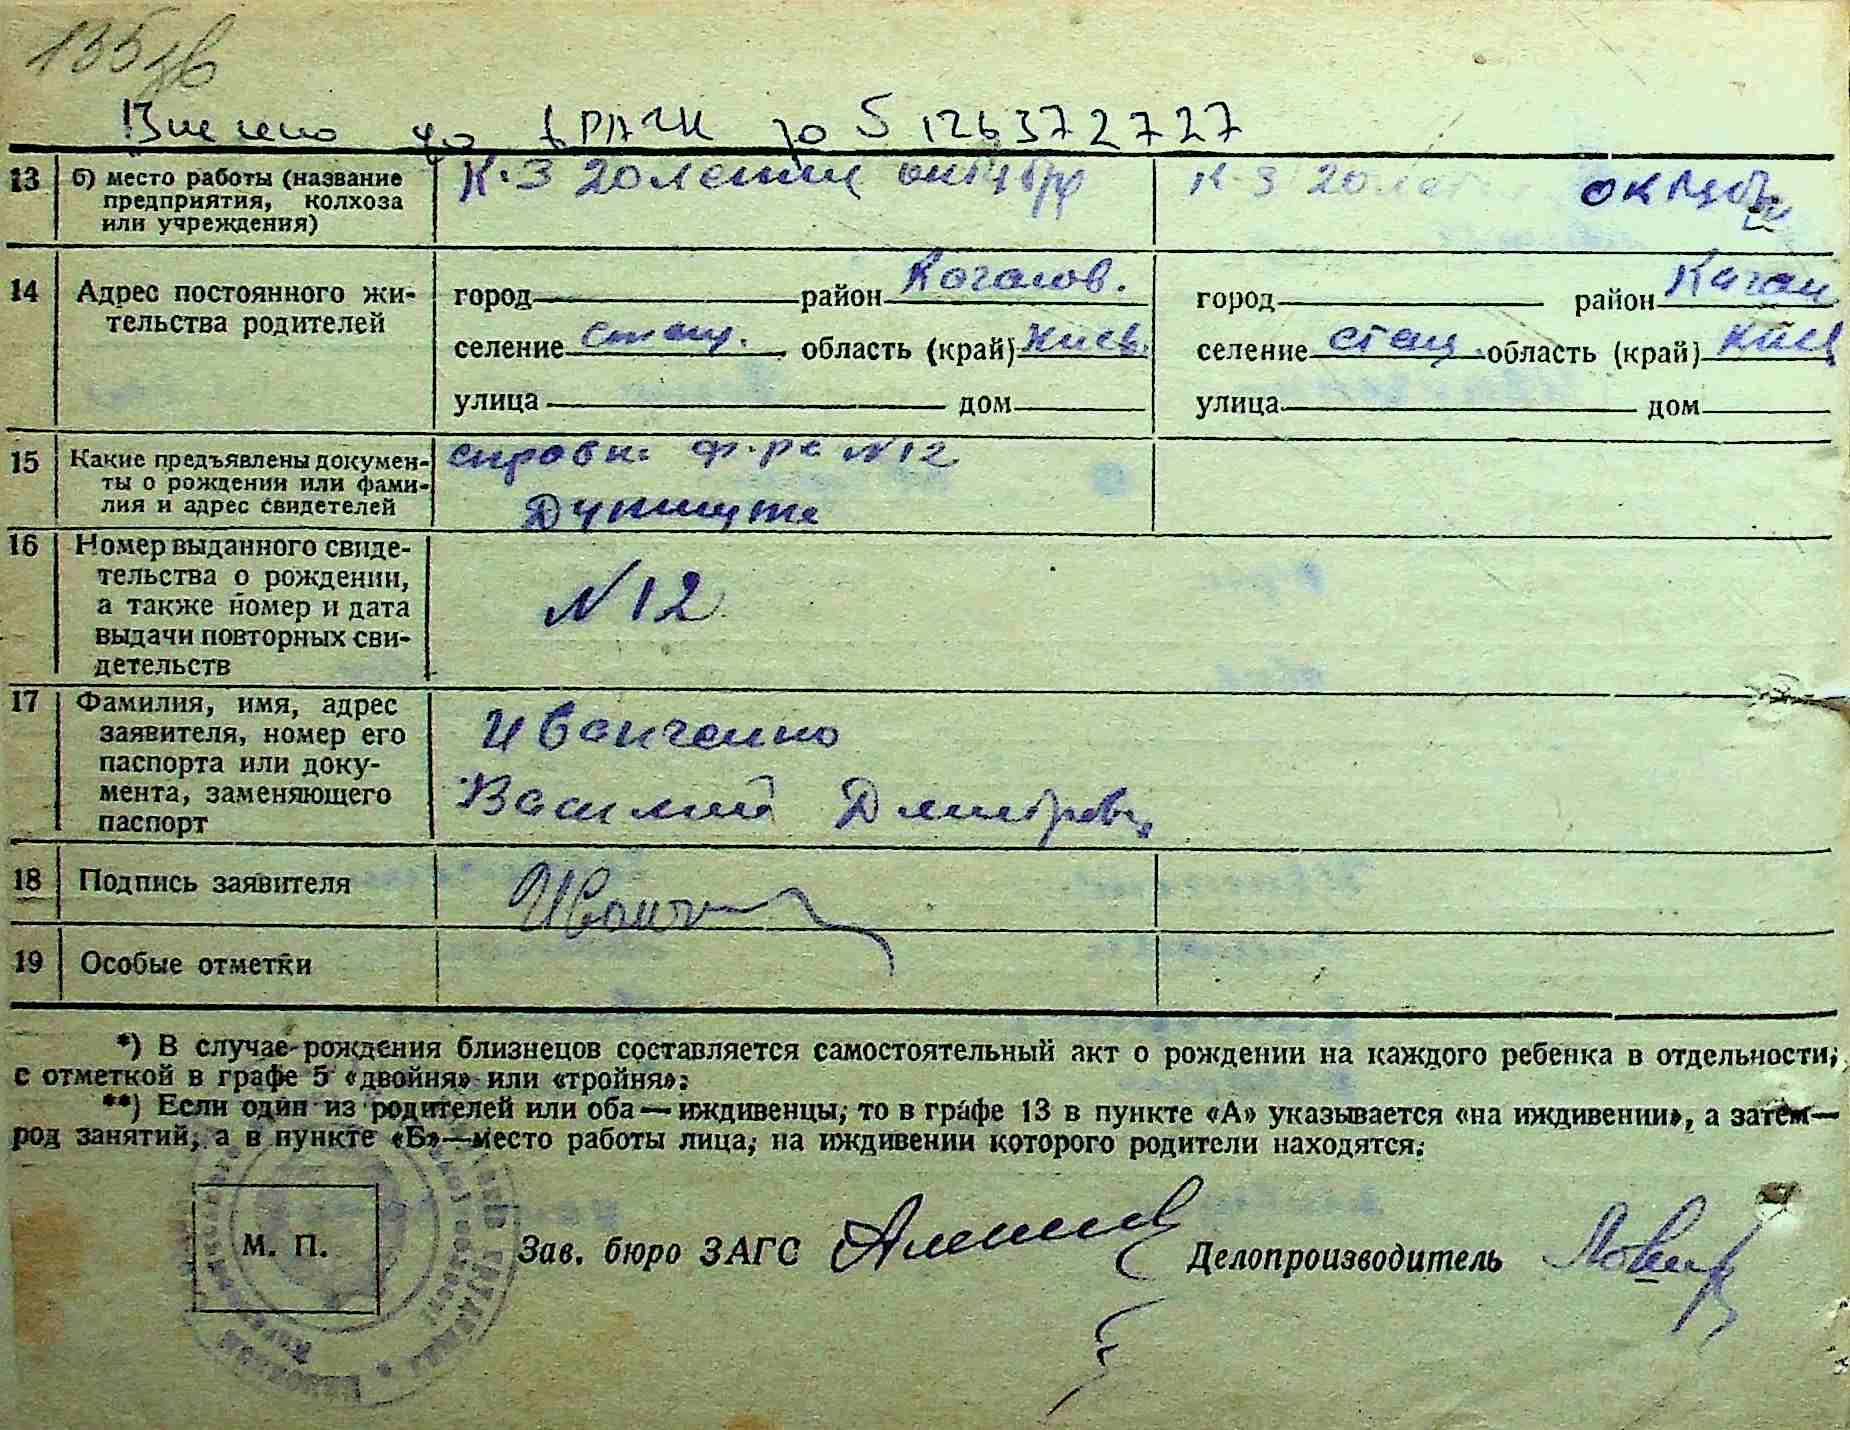 135 зв
Внесено до ДРАЦСГ
13 б) место работы (название предприятия, колхоза или учреждения) К-З 20 летия октября К-З 20 лет октяб
14 Адрес постоянного жительства родителей
город район Каганов. город район Каган
селение стац. область (край) Киев. селение стац. область (край) Киев
улица дом улица дом
15 Какие предъявлены документы о рождении или фамилия и адрес свидетелей справк. ф-ра N12
16 Номер выданного свидетельства о рождении, а также номер и дата выдачи повторных свидетельств N12
17 Фамилия, имя, адрес заявителя, номер его паспорта или документа, заменяющего паспорт Иванченко
Василий Дмитров
18 Подпись заявителя
19 Особые отметки
*) В случае рождения близнецов составляется самостоятельный акт о рождении на каждого ребенка в отдельности,
с отметкой в графе 5 «двойня» или «тройня».
**) Если один из родителей или оба — иждивенцы, то в графе 13 в пункте «А» указывается «на иждивении», а затем—
род занятий, а в пункте «Б»—место работы лица, на иждивении которого родители находятся.
М. П. Зав. бюро ЗАГС Делопроизводитель